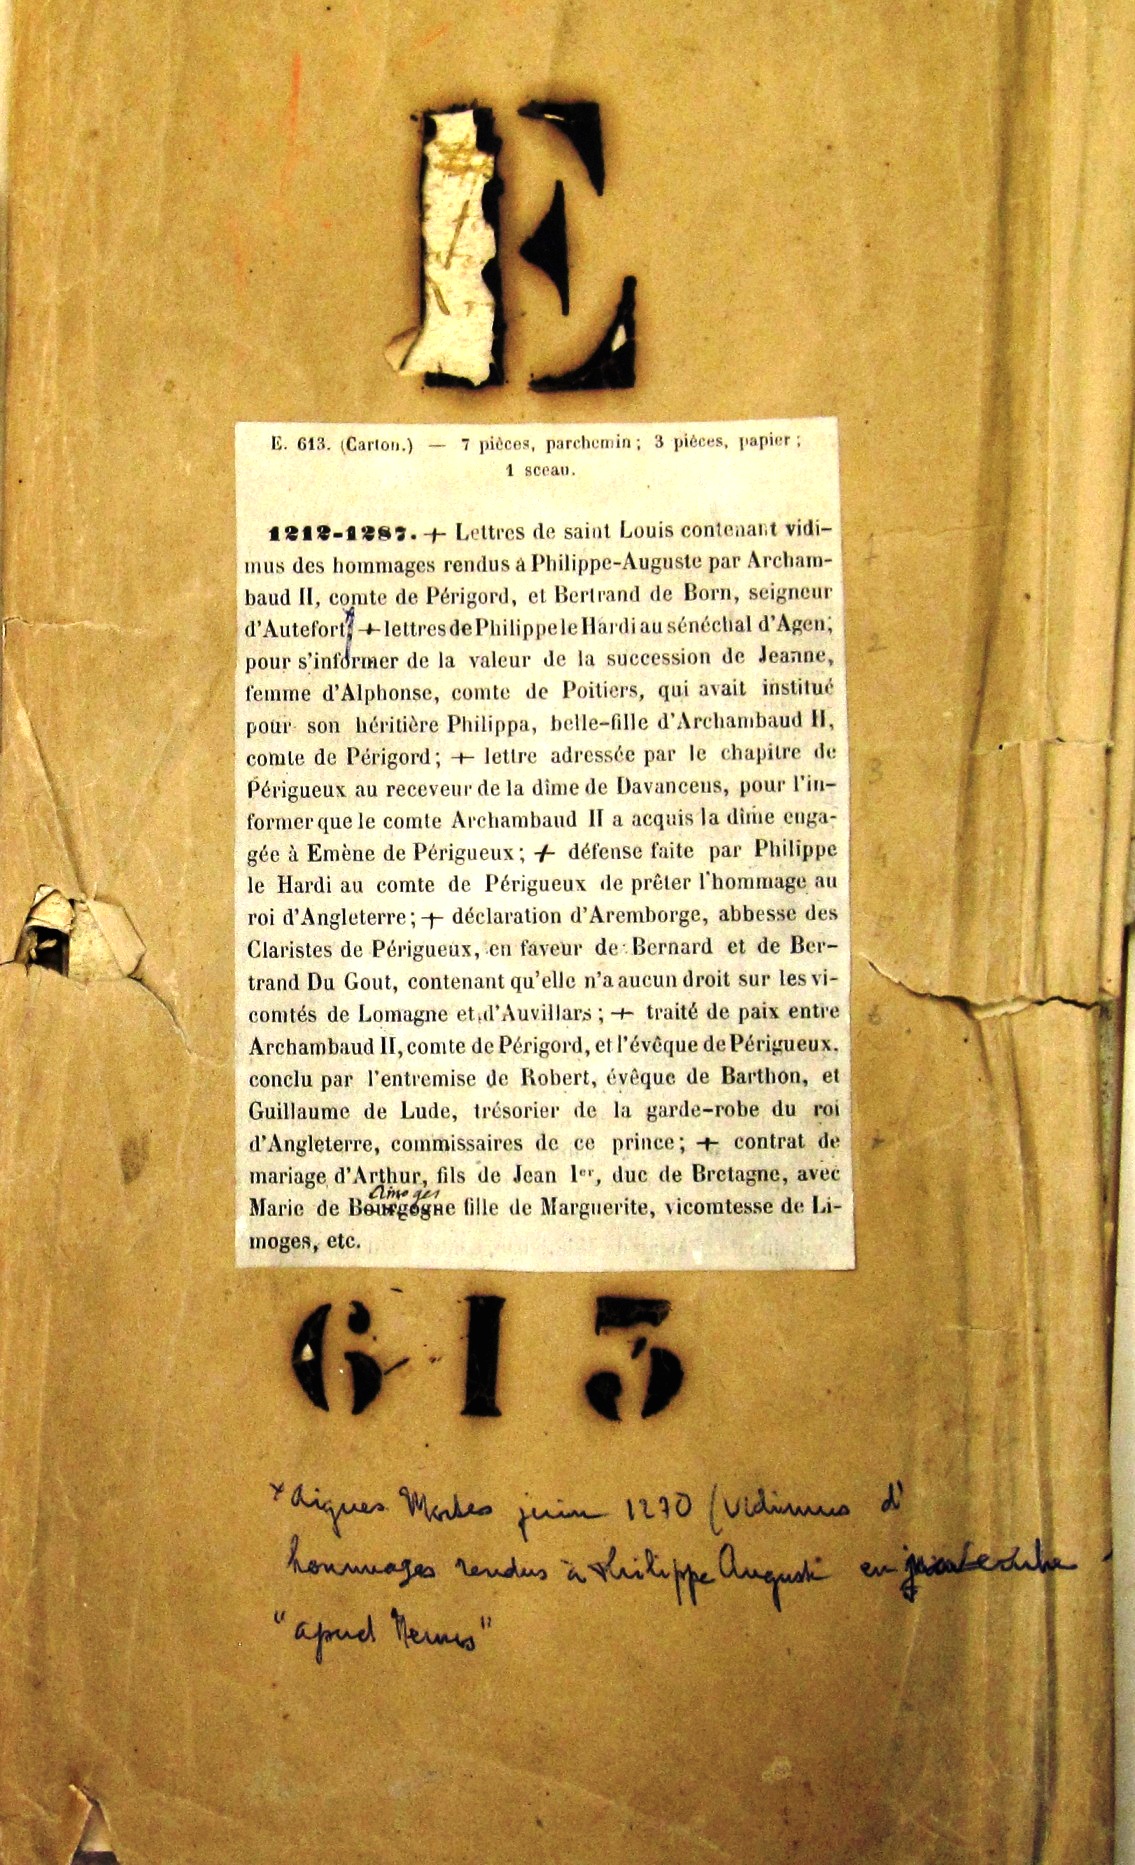 E
E. 613. (Carton.) — 7 pièces, parchemin; 3 pièces, papier;
1 sceau.
1212-1287. + Lettres de saint Louis contenant vidi-
mus des hommages rendus à Philippe-Auguste par Archam-
baud II, comte de Périgord, et Bertrand de Born, seigneur
d'Autefort; + lettres de Philippe le Hardi au sénéchal d'Agen,
pour s'informer de la valeur de la succession de Jeanne,
femme d'Alphonse, comte de Poitiers, qui avait institué
pour son héritière Philippa, belle-fille d'Archambaud II,
comte de Périgord; + lettre adressée par le chapitre de
Périgueux au receveur de la dîme de Davanceus, pour l'in-
former que le comte Archambaud II a acquis la dîme enga-
gée à Emène de Périgueux; + défense faite par Philippe
le Hardi au comte de Périgueux de prêter l'hommage au
roi d'Angleterre; + déclaration d'Aremborge, abbesse des
Claristes de Périgueux, en faveur de Bernard et de Ber-
trand Du Gout, contenant qu'elle n'a aucun droit sur les vi-
comtés de Lomagne et d'Auvillars; + traité de paix entre
Archambaud II, comte de Périgord, et l'évêque de Périgueux,
conclu par l'entremise de Robert, évêque de Barthon, et
Guillaume de Lude, trésorier de la garde-robe du roi
d'Angleterre, commissaires de ce prince; + contrat de
mariage d'Arthur, fils de Jean Ier, duc de Bretagne, avec
Limoges
Marie de Bourgogne fille de Marguerite, vicomtesse de Li-
moges, etc.
613
+ Aigues Mortes juin 1270 (vidimus d'
hommages rendus à Philippe Auguste en
"apud Nemus"